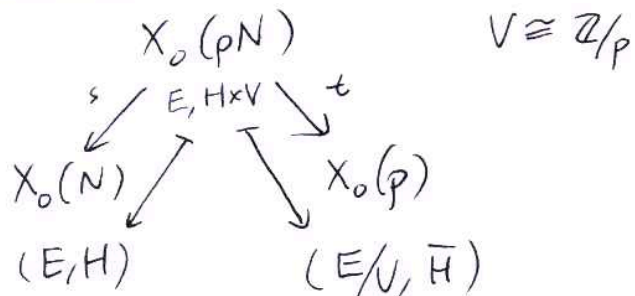 X₀(pN) V ≅ ℤ/p
s E, H×V t
X₀(N) X₀(p)
(E, H) (E/V, H̄)